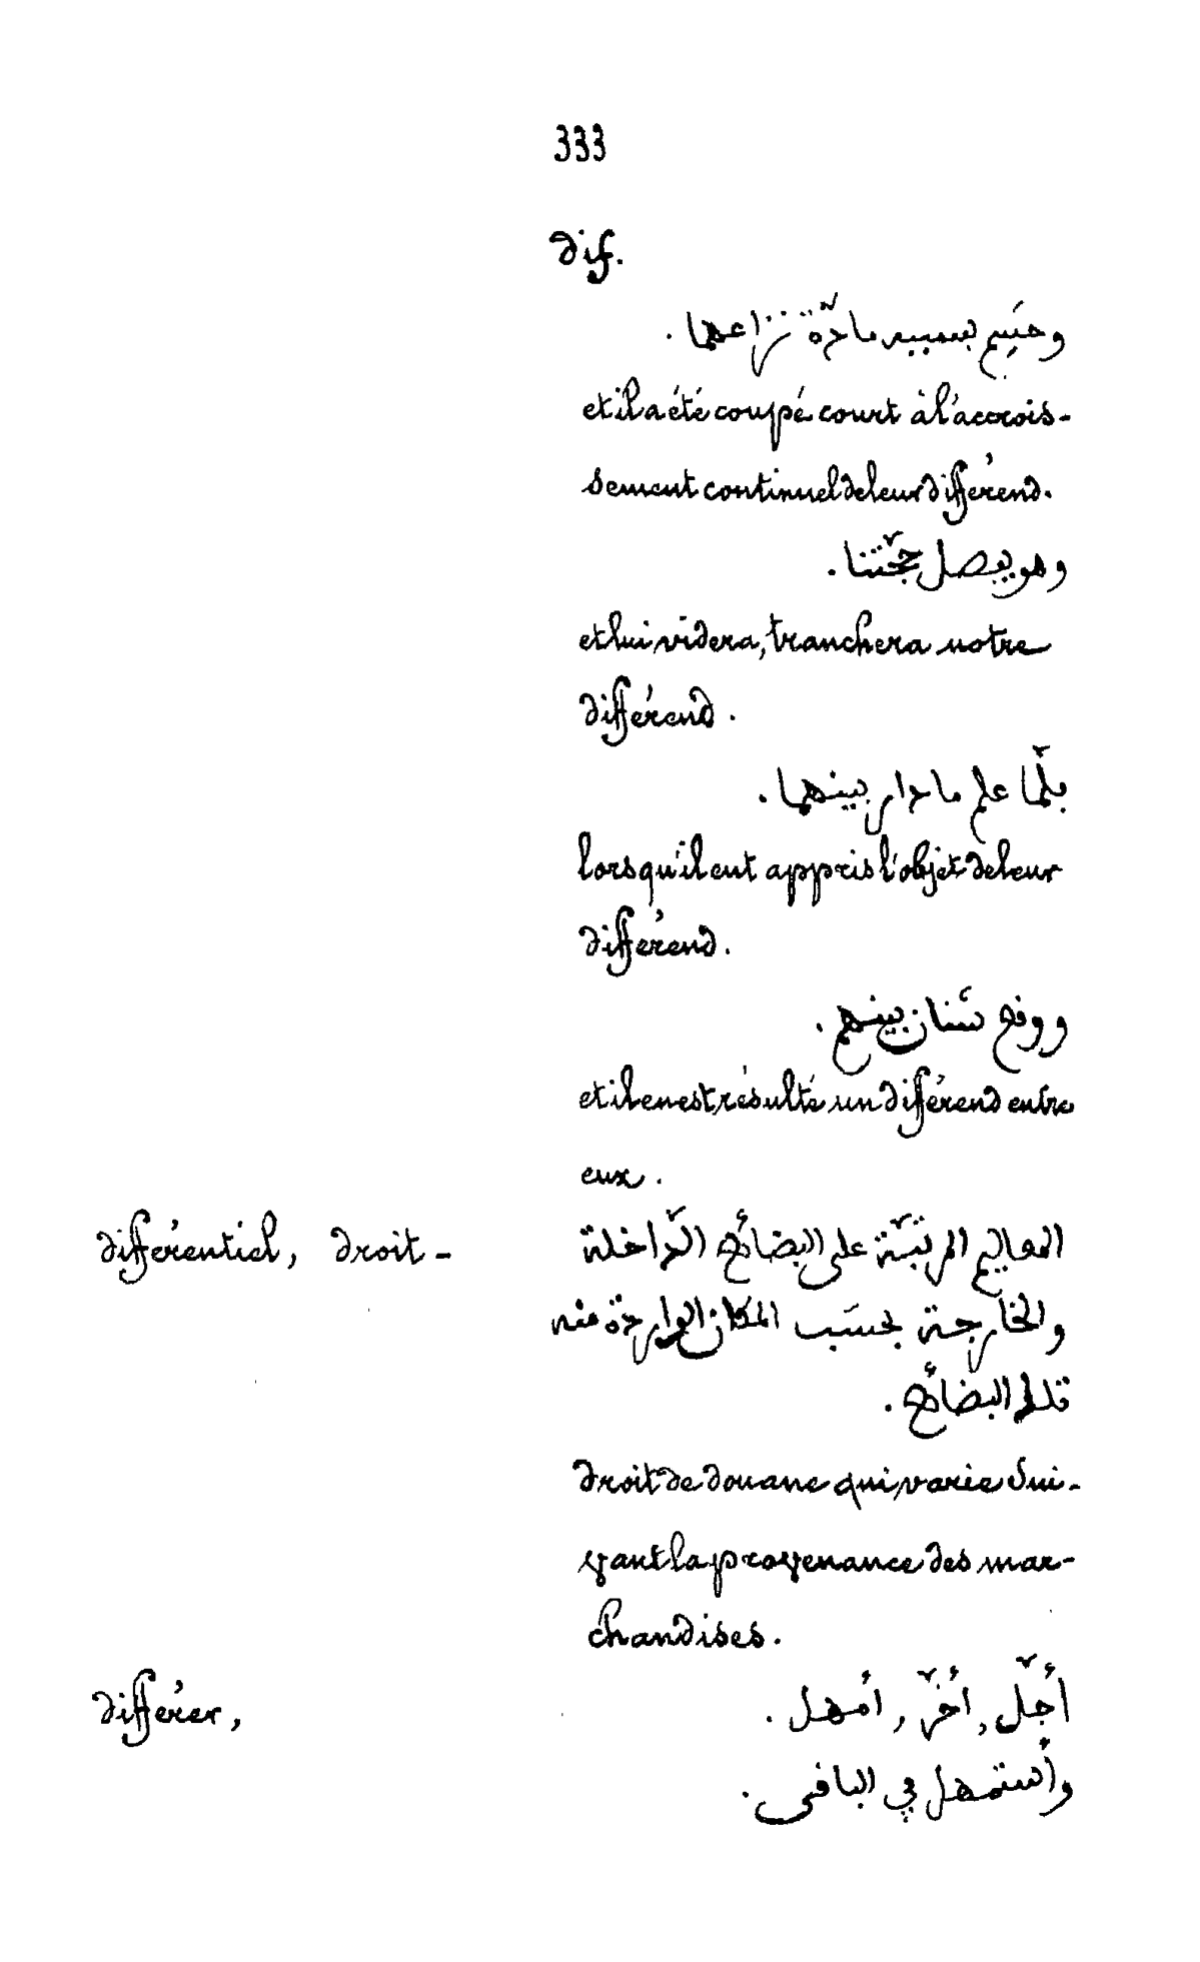 333
dif.
وحُسِم بسببه مادّة نزاعهما .
et il a été coupé court à l'accrois-
sement continuel de leur différend.
وهو يڢصل حجّتنا .
et lui videra, tranchera notre
différend .
ڢلمّا علم ما دار بينهما .
lorsqu'il eut appris l'objet de leur
différend .
ووڧع شنئان بينهم .
et il en est résulté un différend entre
eux .
différentiel, droit – المعاليم المرتّبة على البضائع الدّاخلة
والخارجة بحسَب المكان الواردة منه
تلك البضائع .
droit de douane qui varie sui-
vant la provenance des mar-
chandises .
différer, أجّل , أخّر , أمهل .
وأستمهل ڢي الباڧى .